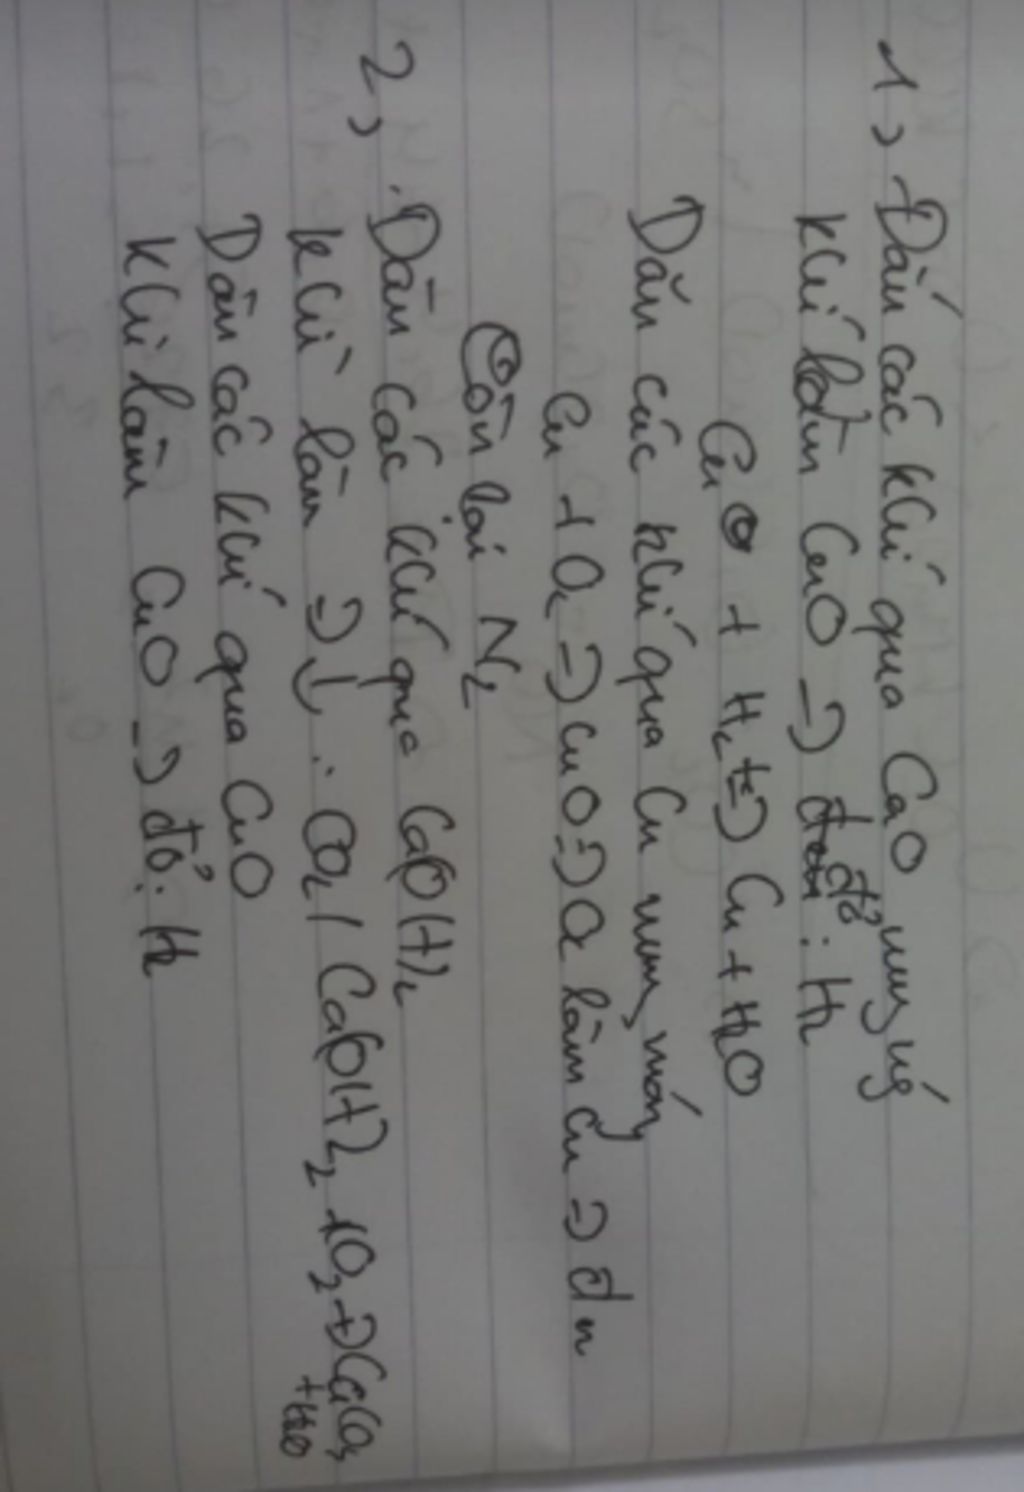 1, Dẫn các khí qua CaO nung
khí làm CuO => đỏ : H2
CuO + H2 t=> Cu + H2O
Dẫn các khí qua Cu nung nóng
Cu + O2 => CuO => O2 làm Cu => đ
Còn lại N2
2, Dẫn các khí qua Ca(OH)2
khí làm => ↓ : CO2 / Ca(OH)2 + CO2 -> CaCO3 + H2O
Dẫn các khí qua CuO
khí làm CuO => đỏ: H2